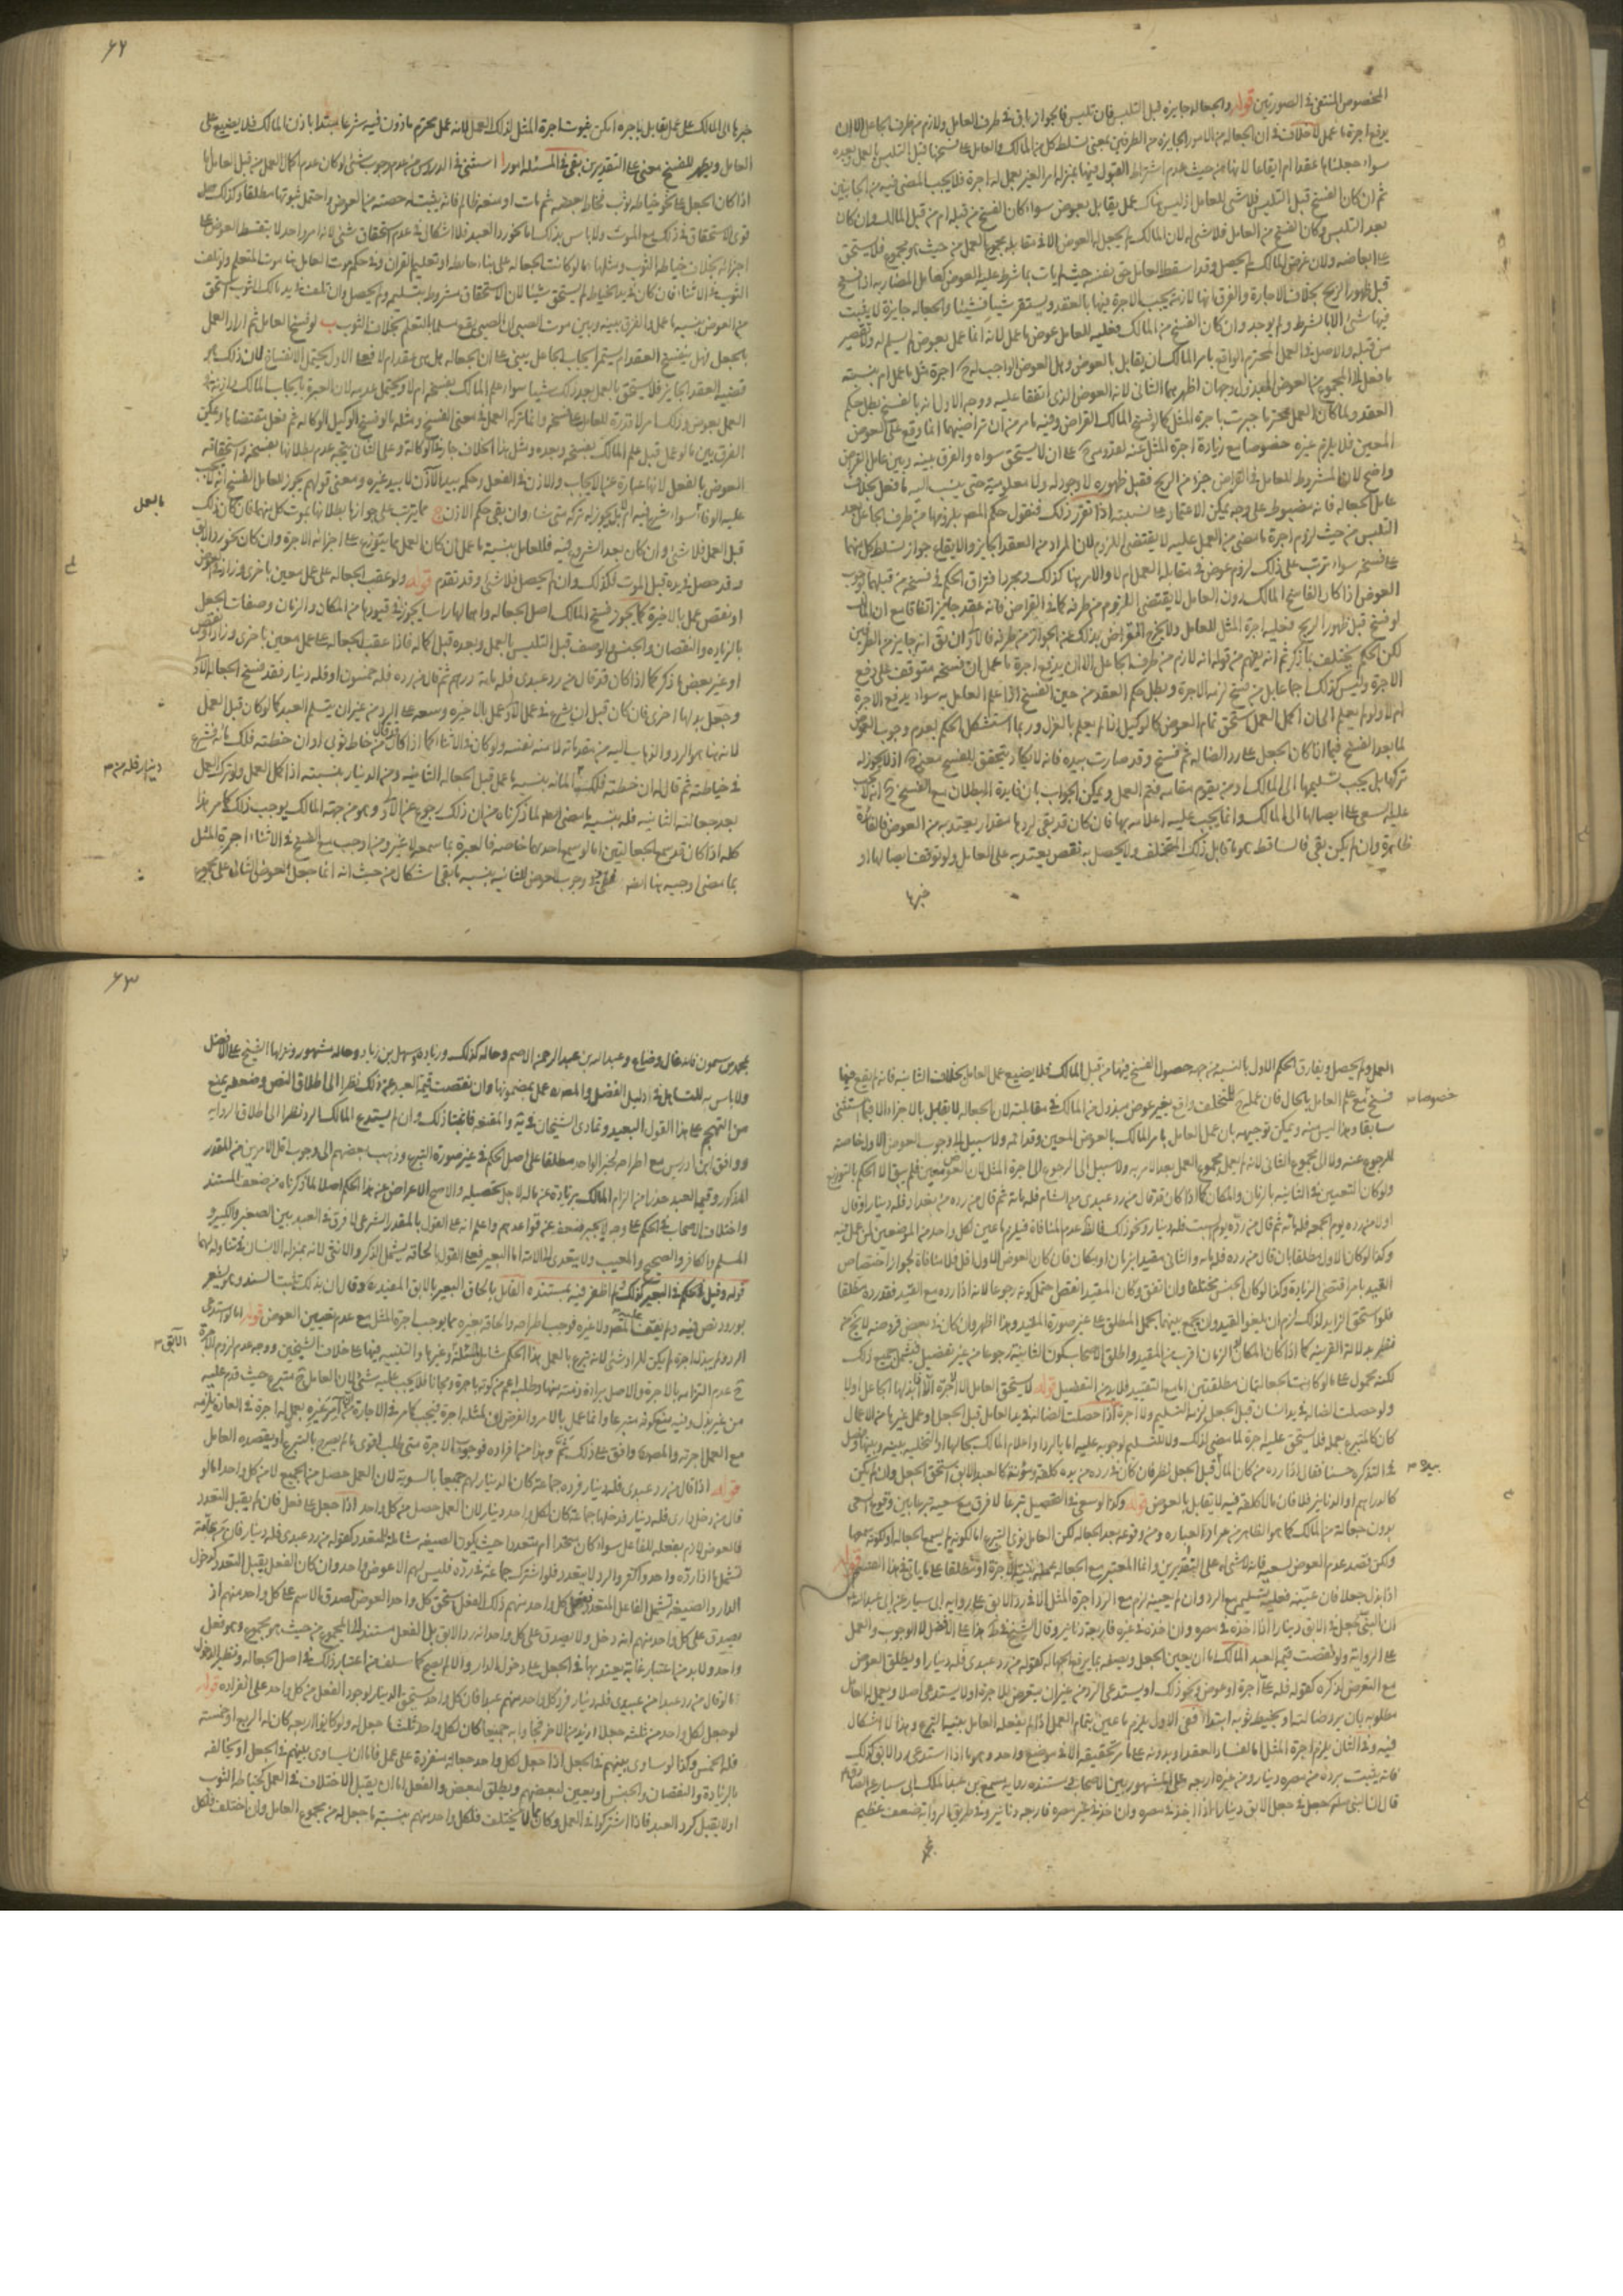 المخصوص المنتفى فى الصورتين قوله والجعالة جايزة قبل التلبس فان تلبس فالجواز باق فى طرف العامل ولازم من طرف الجاعل الا ان
يدفع اجرة ما عمل لا خلاف فى ان الجعالة من الامور الجايزة من الطرفين بمعنى تسلط كل من المالك والعامل على فسخها قبل التلبس بالعمل وبعده
سواء جعلناها عقدا ام ايقاعا لانها من حيث عدم اشتراط القبول فيها بمنزلة امر الغير بعمل له اجرة فلا يجب المضى فيه من الجانبين
ثم ان كان الفسخ قبل التلبس فلا شئ للعامل اذ ليس هناك عمل يقابل بعوض سواء كان الفسخ من قبله ام من قبل المالك وان كان
بعد التلبس وكان الفسخ من العامل فلا شئ له لان المالك لم يجعل له العوض الا فى مقابلة مجموع العمل من حيث هو مجموع فلا يستحق
على ابعاضه ولان غرض المالك لم يحصل وقد اسقط العامل حق نفسه حيث لم يات بما شرط عليه العوض كعامل المضاربة اذا فسخ
قبل ظهور الربح بخلاف الاجارة والفرق انها لازمة تجب الاجرة فيها بالعقد ويستقر شيئا فشيئا والجعالة جايزة لا يثبت
فيها شئ الا بالشرط ولم يوجد وان كان الفسخ من المالك فعليه للعامل عوض ما عمل لانه انما عمل بعوض لم يسلم له ولا تقصير
من قبله والاصل فى العمل المحترم الواقع بامر المالك ان يقابل بالعوض وهل العوض الواجب له ح اجرة مثل ما عمل ام بنسبة
ما فعل الى المجموع من العوض المبذول وجهان اظهرهما الثانى لانه العوض الذى اتفقا عليه ووجه الاول انه بالفسخ بطل حكم
العقد ولما كان العمل محترما جبرت باجرة المثل كما لو فسخ المالك القراض وفيه ما مر من ان تراضيهما انما وقع على العوض
المعين فلا يلزم غيره خصوصا مع زيادة اجرة المثل عنه لقدومه ح على ان لا يستحق سواه والفرق بينه وبين عامل القراض
واضح لان المشروط للعامل فى القراض جزء من الربح فقبل ظهوره لا وجود له ولا معلومية حتى ينسب اليه ما فعل بخلاف
عامل الجعالة فانه مضبوط على وجه يمكن الاعتماد على نسبته اذا تقرر ذلك فنقول حكم المصـ بلزومها من طرف الجاعل بعد
التلبس من حيث لزوم اجرة ما مضى من العمل عليه لا يقتضى اللزوم لان المراد من العقد الجايز والايقاع جواز تسلط كل منهما
على فسخه سواء ترتب على ذلك لزوم عوض فى مقابلة العمل ام لا والامر هنا كذلك ومجرد افتراق الحكم فى فسخه من قبلهما بوجوب
العوض اذا كان الفاسخ المالك دون العامل لا يقتضى اللزوم من طرفه كما فى القراض فانه عقد جايز اتفاقا مع ان المالك
لو فسخ قبل ظهور الربح فعليه اجرة المثل للعامل ولا يخرج القراض بذلك عن الجواز من طرفه فالاولى ان يق انه جايز من الطرفين
لكن الحكم يختلف بما ذكر ثم انه يفهم من قوله انه لازم من طرف الجاعل الا ان يدفع اجرة ما عمل ان فسخه متوقف على دفع
الاجرة وليس كذلك اجماعا بل متى فسخ لزمه الاجرة وبطل حكم العقد من حين الفسخ اذا علم العامل به سواء دفع الاجرة
ام لا ولو لم يعلم الى ان اكمل العمل استحق تمام العوض كالوكيل اذا لم يعلم بالعزل وربما استشكل الحكم بعدم وجوب العوض
لما بعد الفسخ فيما اذا كان الجعل على رد الضالة ثم فسخ وقد صارت بيده فانه لا يكاد يتحقق للفسخ معنى ح اذ لا يجوز له
تركها بل يجب تسليمها الى المالك او من يقوم مقامه فتم العمل ويمكن الجواب بان فايدة البطلان مع الفسخ ح انه لا يجب
عليه السعى على ايصالها الى المالك وانما يجب عليه اعلامه بها فان كان قد بقى لردها مقدار يعتد به من العوض فالفائدة
ظاهرة وان لم يكن بقى فالساقط هو ما قابل ذلك المتخلف ولا يحصل به نقص يعتد به على العامل ولو توقف ايصالها او
خبرها
۶۲
خبرها الى المالك على عمل يقابل باجرة امكن ثبوت اجرة المثل لذلك العمل لانه عمل محترم ماذون فيه شرعا مبتدا باذن المالك فلا يضيع على
العامل ويظهر للفسخ معنى على التقديرين بقى فى المسئلة امور ا استثنى فى الدروس من عدم وجوب شئ لو كان عدم اكمال العمل من قبل العامل ما
اذا كان الجعل على نحو خياطة ثوب فخاط بعضه ثم مات او منعه ظالم فانه يثبت له حصته من العوض واحتمل ثبوتها مطلقا وكذلك
قوى الاستحقاق فى ذلك مع الموت ولا باس بذلك اما نحو رد العبد فلا اشكال فى عدم استحقاق شئ لانه امر واحد لا يتقسط العوض على
اجزائه بخلاف خياطة الثوب ومثلها ما لو كانت الجعالة على بناء حائط او تعليم القران وفى حكم موت العامل هنا موت المتعلم ولو تلف
الثوب فى الاثناء فان كان فى يد الخياط لم يستحق شيئا لان الاستحقاق مشروط بتسليمه ولم يحصل وان تلف فى يد مالك الثوب استحق
من العوض بنسبة ما عمل والفرق بينه وبين موت الصبى ان الصبى يقع مسلما بالتعلم بخلاف الثوب ب لو فسخ العامل ثم اراد العمل
بالجعل فهل ينفسخ العقد ام يستمر ايجاب الجاعل يبنى على ان الجعالة هل هى عقد ام لا فعلى الاول يحتمل الانفساخ لان ذلك هو
قضية العقد الجايز فلا يستحق بالعمل بعد ذلك شيئا سواء علم المالك بفسخه ام لا ويحتمل عدمه لان العبرة بايجاب المالك
العمل بعوض وذلك امر لا قدرة للعامل على فسخه وانما تركه العمل فى معنى الفسخ ومثله ما لو فسخ الوكيل الوكالة ثم فعل مقتضاها ويمكن
الفرق بين ما لو عمل قبل علم المالك بفسخه وبعده ومثل هذا الخلاف جار فى الوكالة وعلى الثانى يتجه عدم بطلانها بفسخه واستحقاقه
العوض بالفعل لانها عبارة عن الايجاب والاذن فى الفعل وحكمه بيد الآذن لا بيد غيره ومعنى قولهم يجوز للعامل الفسخ انه لا يجب
بالعمل
عليه الوفاء سواء شرع فيه ام لا بل يجوز له تركه متى شاء وان بقى حكم الاذن ج مما يترتب على جوازها بطلانها بموت كل منهما فان كان ذلك
قبل العمل فلا شئ وان كان بعد الشروع فيه فللعامل بنسبة ما عمل ان كان العمل مما يتوزع على اجزائه الاجرة وان كان نحو رد الآبق
وقد حصل فى يده قبل الموت فكذلك وان لم يحصل فلا شئ وقد تقدم قوله ولو عقب الجعالة على عمل معين باخرى وزاد فى العوض
او نقص عمل بالاخيرة كما يجوز فسخ المالك اصل الجعالة واهمالها راسا يجوز فى قيودها من المكان والزمان وصفات الجعل
بالزيادة والنقصان والجنس والوصف قبل التلبس بالعمل وبعده قبل كماله فاذا عقب الجعالة على عمل معين باخرى وزاد او نقص
او غير بعض ما ذكر كما اذا كان قد قال من رد عبدى فله مائة درهم ثم قال من رده فله خمسون او فله دينار فقد فسخ الجعالة الاولى
وجعل بدلها اخرى فان كان قبل ان يشرع فى عمل الاولى عمل بالاخيرة
لانه هنا هو الرد والذهاب اليه من مقدماته لا منه نفسه ولو كان فى الاثناء كما اذا كان قد قال من خاط ثوبى
دينار فله من
فى خياطته ثم قال له ان خطته فلك درهم فله بنسبة ما عمل قبل الجعالة الثانية ومن الدينار بنسبته اذا اكمل العمل ولو ترك العمل
بعد جعالته الثانية فله بنسبة ما مضى ايضا لما ذكرناه من ان ذلك رجوع عن الاولى وهو من جهة المالك يوجب ذلك كما مر هذا
كله اذا كان قد سمع الجعالتين اما لو سمع احدهما خاصة فالعبرة بما سمعه لا غير ومن اوجب مع الفسخ فى الاثناء اجرة المثل
بما مضى اوجبه هنا ايضا وجوب العوض للثانية بنسبة ما بقى اشكال من حيث انه انما جعل العوض الثانى على مجموع
العمل ولم يحصل ويفارق الحكم الاول بالنسبة من جهة حصول الفسخ فيها من قبل المالك فلا يضيع عمل العامل بخلاف الثانية فانه لم يقع فيها
خصوصا
فسخ مع علم العامل بالحال فان عمله ح للتخلف واقع بغير عوض مبذول من المالك فى مقابلته لان الجعالة لا تقابل بالاجزاء الا فيما استثنى
سابقا وهذا ليس منه ويمكن توجيهه بان عمل العامل بامر المالك بالعوض المعين وقد اتمه ولا سبيل الى وجوب العوض الاول خاصة
للرجوع عنه ولا الى مجموع الثانى لانه لم يعمل مجموع العمل بعد الامر به ولا سبيل الى الرجوع الى اجرة المثل لان العوض معين فلم يبق الا الحكم بالتوزيع
ولو كان التعيين فى الثانية بالزمان والمكان كما اذا كان قد قال من رد عبدى من الشام فله مائة ثم قال من رده من بغداد فله دينار او قال
اولا من رده يوم الجمعة فله مائة ثم قال من رده يوم السبت فله دينار ونحو ذلك فالظ عدم المنافاة فيلزم ما عين لكل واحد من الموضعين لمن عمل فيه
وكذا لو كان الاول مطلقا بان قال من رده فله مائة والثانى مقيد بزمان او مكان فان كان العوض الاول اقل فلا منافاة لجواز اختصاص
القيد بامر اقتضى الزيادة وكذا لو كان الجنس مختلفا وان اتفق وكان المقيد انقص احتمل كونه رجوعا لانه اذا رده مع القيد فقد رده مطلقا
فلو استحق الزايد لذلك لزم ان يلغو القيد وان يجمع بينهما بحمل المطلق على غير صورة المقيد وهذا اظهر وان كان فى بعض فروضه لا يخ من
نظر بدلالة القرينة كما اذا كان المكان او الزمان اقرب فى المقيد واطلق الاصحاب كون الثانية رجوعا من غير تفصيل فيشمل جميع ذلك
لكنه محمول على ما لو كانت الجعالتان مطلقتين اما مع التقييد فلا بد من التفصيل قوله لا يستحق العامل الاجرة الا اذا بذلها الجاعل اولا
ولو حصلت الضالة فى يد انسان قبل الجعل لزمه التسليم ولا اجرة اذا حصلت الضالة فى يد العامل قبل الجعل او عمل غيرها من الاعمال
كان كالمتبرع بعمله فلا يستحق عليه اجرة لما مضى لذلك ولا للتسليم لوجوبه عليه اما بالرد او اعلام المالك بحالها او التخلية بينه وبينها وفصل
فى التذكرة حسنا فقال اذا رده من كان المال بيده قبل الجعل نظر فان كان فى رده من يده كلفة ومؤنة كالعبد الآبق استحق الجعل وان لم يكن
بيده
كالدراهم والدنانير فلا فان ما لا كلفة فيه لا يقابل بالعوض قوله وكذا لو سعى فى التحصيل تبرعا لا فرق مع سعيه تبرعا بين وقوع السعى
بدون جعالة من المالك كما هو الظاهر من مراد العبارة ومن وقوعه بعد الجعالة لكن العامل نوى التبرع اما لكونه لم يسمع الجعالة او لكونه سمعها
ولكن قصد عدم العوض بسعيه فانه لا شئ له على التقديرين وانما المعتبر مع الجعالة عمله بنية الاجرة او مطلقا على ما ياتى فى هذا القسم قوله
اذا بذل جعلا فان عينه فعليه تسليمه مع الرد وان لم يعينه لزم مع الرد اجرة المثل الا فى رد الآبق على رواية ابى سيار عن ابى عبد الله
ان النبى جعل فى الآبق دينارا اذا اخذه فى مصره وان اخذه فى غيره فاربعة دنانير وقال الشيخ فى ط هذا على الافضل لا الوجوب والعمل
على الرواية ولو نقصت قيمة العبد المالك اما ان يعين الجعل ويصفه بما يرفع الجهالة كقوله من رد عبدى فله دينار او يطلق العوض
مع التعرض لذكره كقوله فله على اجرة او عوض ونحو ذلك او يستدعى الرد من غير ان يتعرض للاجرة او لا يستدعى اصلا ويعمل له العامل
مطلوبه بان يرد ضالته او يخيط ثوبه ابتداء ففى الاول يلزم ما عين بتمام العمل اذا لم يفعله العامل بنية التبرع وهذا لا اشكال
فيه وفى الثانى يلزم اجرة المثل اما لفساد العقد او بدونه على ما مر تحقيقه الا فى موضع واحد وهو ما اذا استدعى رد الآبق كذلك
فانه يثبت برده من مصره دينار ومن غيره اربعة على المشهور بين الاصحاب ومستنده رواية مسمع بن عبد الملك ابى سيار عن الصادق ع
قال ان النبى ص جعل فى جعل الآبق دينارا اذا اخذ فى مصره وان اخذ فى غير مصره فاربعة دنانير وفى طريق الرواية ضعف عظيم
۶۳
بمحمد بن سمون فانه غال وضاع وعبد الله بن عبد الرحمن الاصم وحاله كذلك وزيادة وسهل بن زياد وحاله مشهور ونزلها الشيخ على الافضل
ولا باس به للتساهل فى دليل الفضل والمصـ عمل بمضمونها وان نقصت قيمة العبد عن ذلك نظرا الى اطلاق النص وضعفه يمنع
من التهجم على هذا القول البعيد وتمادى الشيخان فى يه والمقنعة فاثبتا ذلك وان لم يستدع المالك الرد نظرا الى اطلاق الرواية
ووافق ابن ادريس مع اطراحه لخبر الواحد مطلقا على اصل الحكم فى غير صورة التبرع وذهب بعضهم الى وجوب اقل الامرين من المقدر
المذكور وقيمة العبد حذرا من الزام المالك بزيادة عن ماله لاجل تحصيله والاصح الاعراض عن هذا الحكم اصلا لما ذكرناه من ضعف المستند
واختلاف الاصحاب فى الحكم على وجه لا يجبر ضعفه عن قواعدهم واعلم انه على القول بالمقدر الشرعى لا فرق فى العبد بين الصغير والكبير و
المسلم والكافر والصحيح والمعيب ولا يتعدى الى الامة اما البعير فعلى القول بالحاقه يشمل الذكر والانثى لانه بمنزلة الانسان فى تناوله لهما
قوله وقيل الحكم فى البعير كذلك لم اظفر فيه بمستند القايل بالحاق البعير بالآبق المفيد وقال ان بذلك ثبتت السنة وهو يشعر
بورود نص فيه ولم يقف المصـ عليه ولا غيره فوجب اطراحه والحاقه بغيره مما يوجب اجرة المثل مع عدم تعيين العوض قوله اما لو استدعى
الرد ولم يبذل اجرة لم يكن للراد شئ لانه تبرع بالعمل هذا الحكم شامل لمسئلة الآبق وغيرها والتنبيه فيها على خلاف الشيخين ووجه عدم لزوم الاجرة
الآبق
ح عدم التزامه بالاجرة والاصل براءة ذمته منها وطلبه اعم من كونه باجرة ومجانا فلا يجب عليه شئ لان العامل ح متبرع حيث قدم عليه
من غير بذل وفيه منع كونه متبرعا وانما عمل بالامر والفرض ان لمثله اجرة فيجب كما مر فى الاجارة من ان من امر غيره بعمل له اجرة فى العادة يلزمه
مع العمل اجرته والمصـ وافق على ذلك ثم وهذا من افراده فوجوب الاجرة متى طلب اقوى ما لم يصرح بالتبرع او يقصده العامل
قوله اذا قال من رد عبدى فله دينار فرده جماعة كان الدينار لهم جميعا بالسوية لان العمل حصل من الجميع لا من كل واحد اما لو
قال من دخل دارى فله دينار فدخلها جماعة كان لكل واحد دينار لان العمل حصل من كل واحد اذا جعل على فعل فان لم يقبل التعدد
فالعوض لازم بفعله للفاعل سواء كان متحدا ام متعددا حيث يكون الصيغة شاملة للمتعدد كقوله من رد عبدى فله دينار فان من عامة
تشمل ما اذا رده واحد واكثر والرد لا يتعدد فلو اشترك جماعة فى رده فليس لهم الا عوض واحد وان كان الفعل يقبل التعدد كدخول
الدار والصيغة تشمل الفاعل المتعدد ففعل كل واحد منهم ذلك الفعل استحق كل واحد العوض لصدق الاسم على كل واحد منهم اذ
يصدق على كل واحد منهم انه دخل ولا يصدق على كل واحد انه رد الآبق بل الفعل مستند الى المجموع من حيث هو مجموع وهو فعل
واحد ولا بد من اعتبار غاية يعتد بها فى الجعل على دخول الدار والا لم يصح كما سلف من اعتبار ذلك فى اصل الجعالة ونظير الدخول
ما لو قال من رد عبدا من عبيدى فله دينار فرد كل واحد منهم عبدا فان كل واحد يستحق الدينار لوجود الفعل من كل واحد على انفراده قوله
لو جعل لكل واحد من ثلثة جعلا ازيد من الآخر فجاءوا به جميعا كان لكل واحد ثلث ما جعل له ولو كانوا اربعة كان له الربع او خمسة
فله الخمس وكذا لو ساوى بينهم فى الجعل اذا جعل لكل واحد جعالة منفردة على عمل فاما ان يساوى بينهم فى الجعل او يخالفه
بالزيادة والنقصان والجنس او يعين لبعضهم ويطلق لبعض والفعل اما ان يقبل الاختلاف فى العمل كخياطة الثوب
او لا يقبل كرد العبد فاذا اشتركوا فى العمل وكان مما لا يختلف فلكل واحد منهم بنسبة ما جعل له من مجموع العامل وان اختلف فلكل